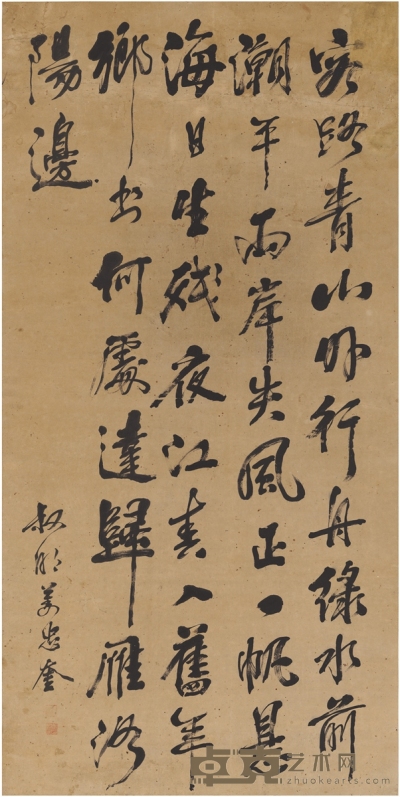 客路青山外行舟綠水前
潮平兩岸失風正一帆懸
海日生殘夜江春入舊年
鄉書何處達歸雁洛
陽邊
叔明姜忠奎
卓克艺术网
zhuokearts.com